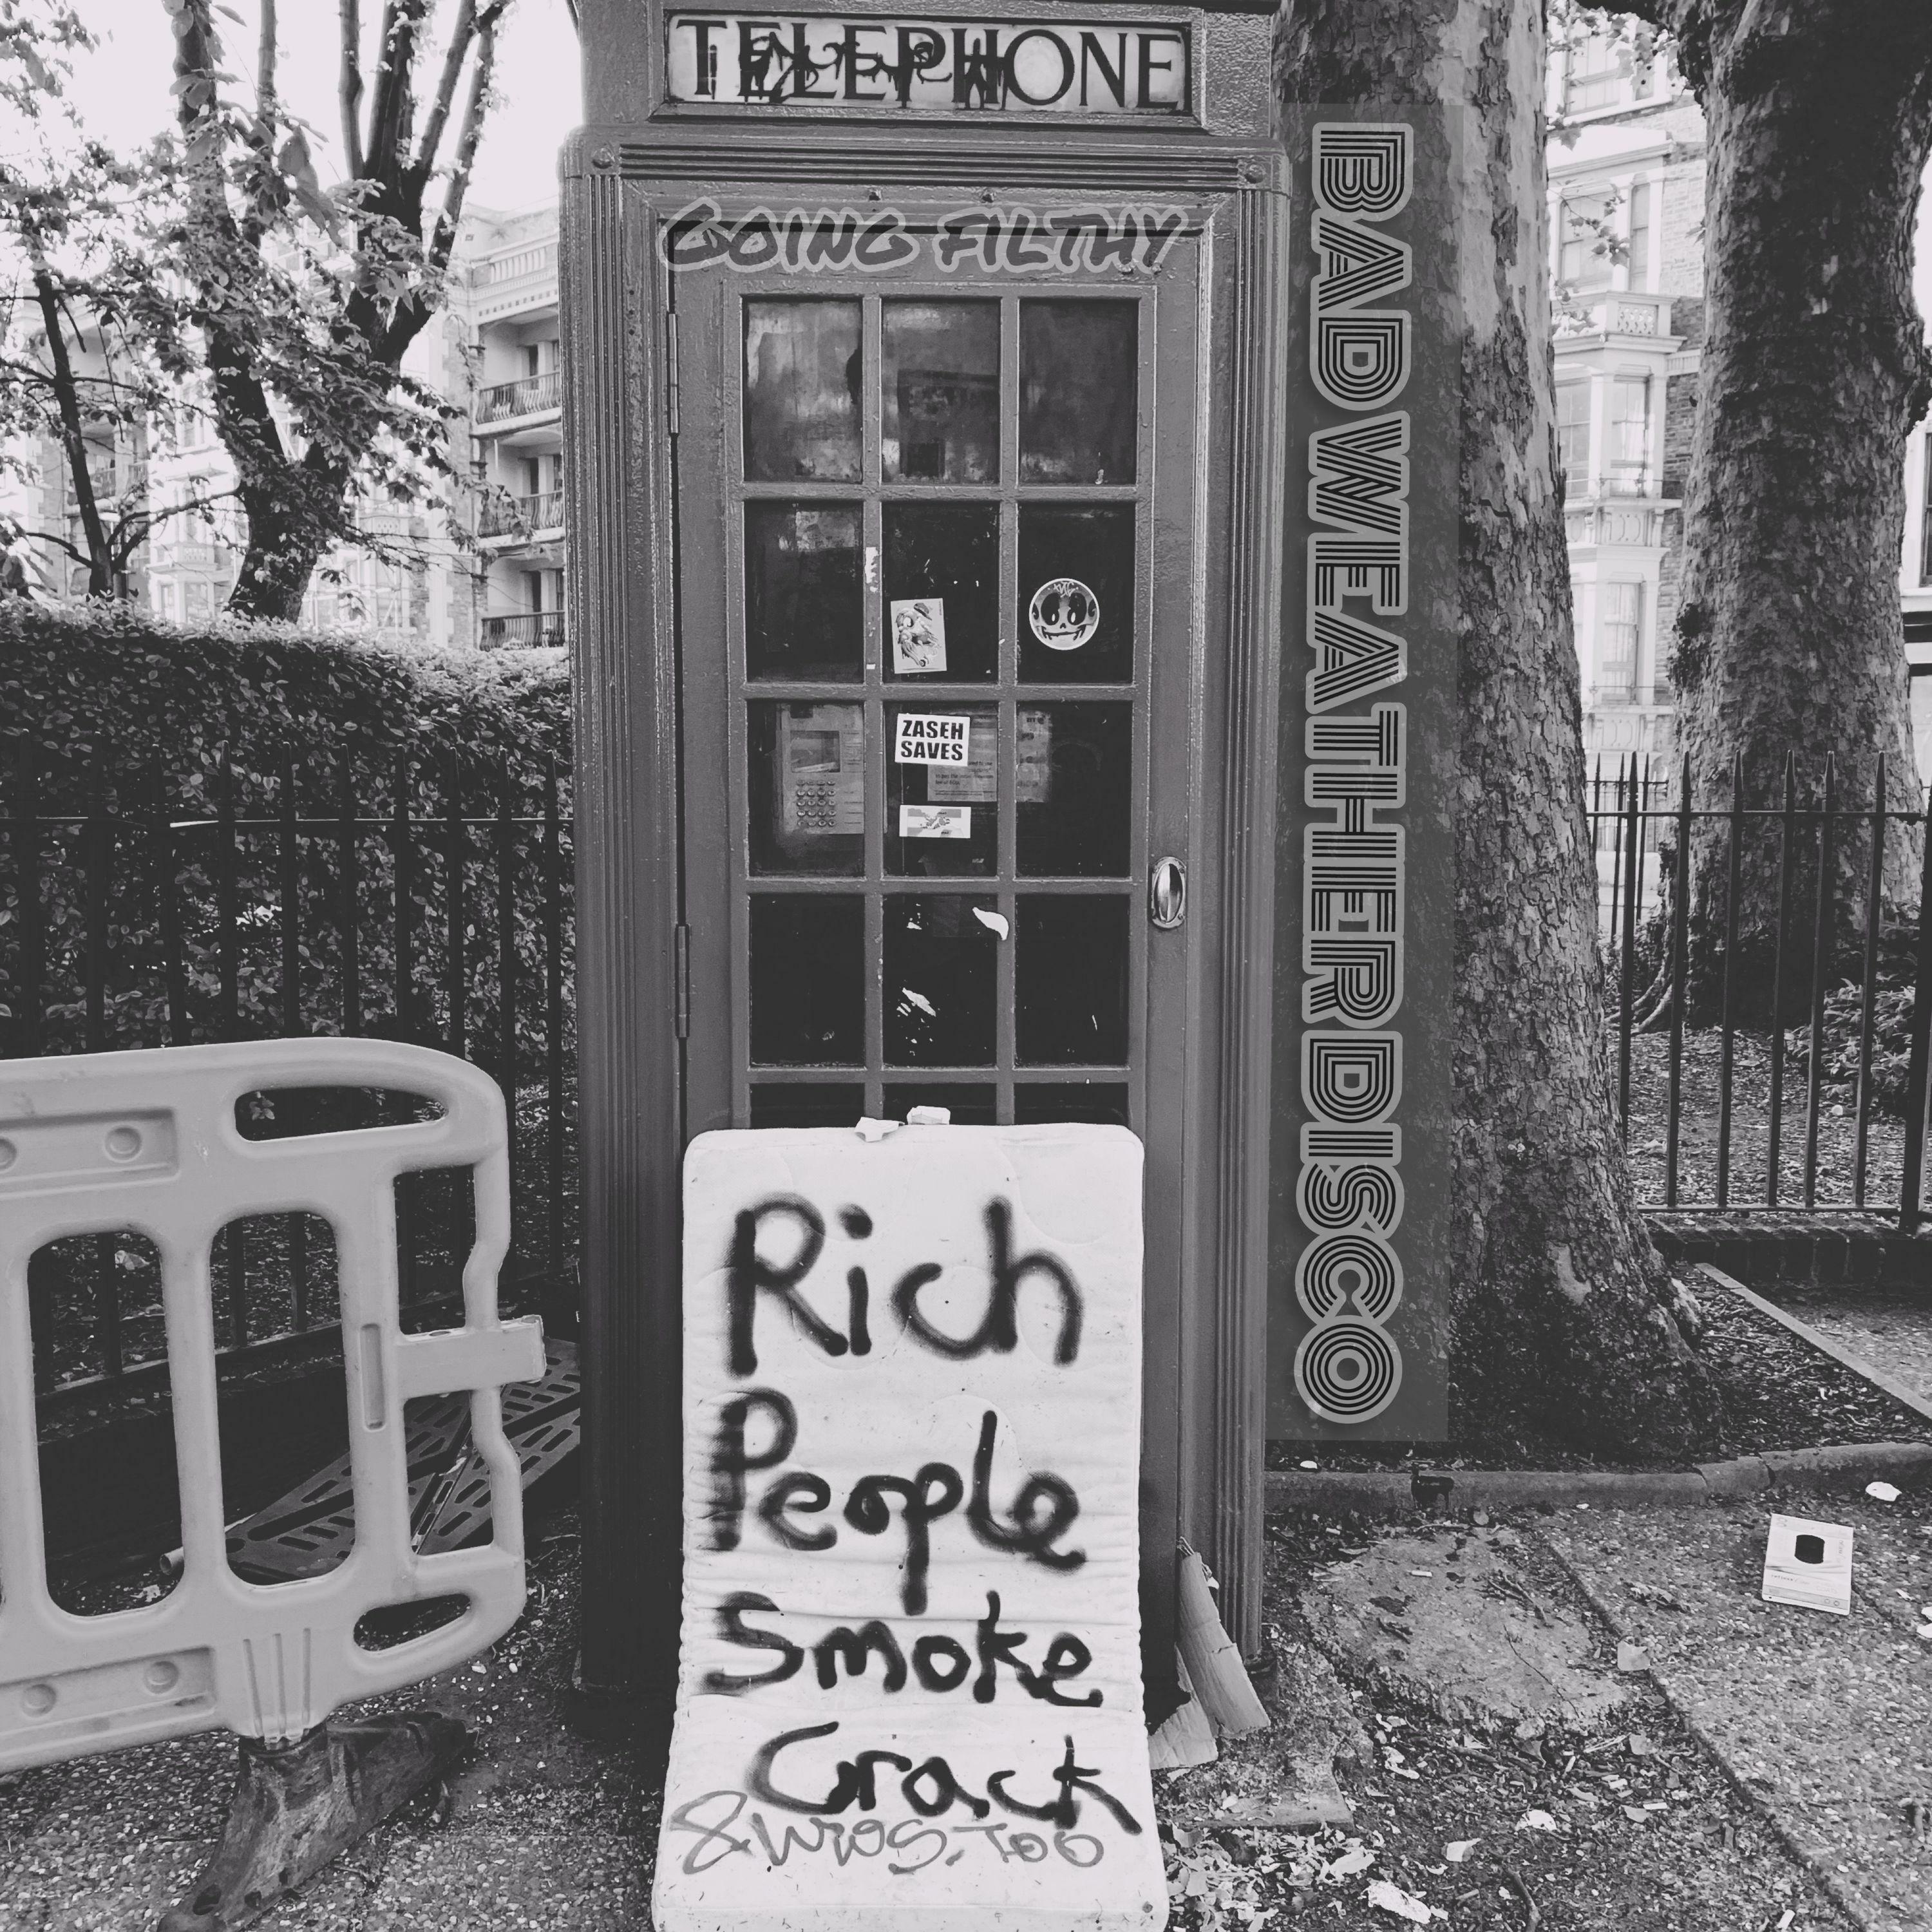 TELEPHONE
GOING FILTHY
BAD WEATHER DISCO
ZASEH
SAVES
Rich
People
Smoke
Crack